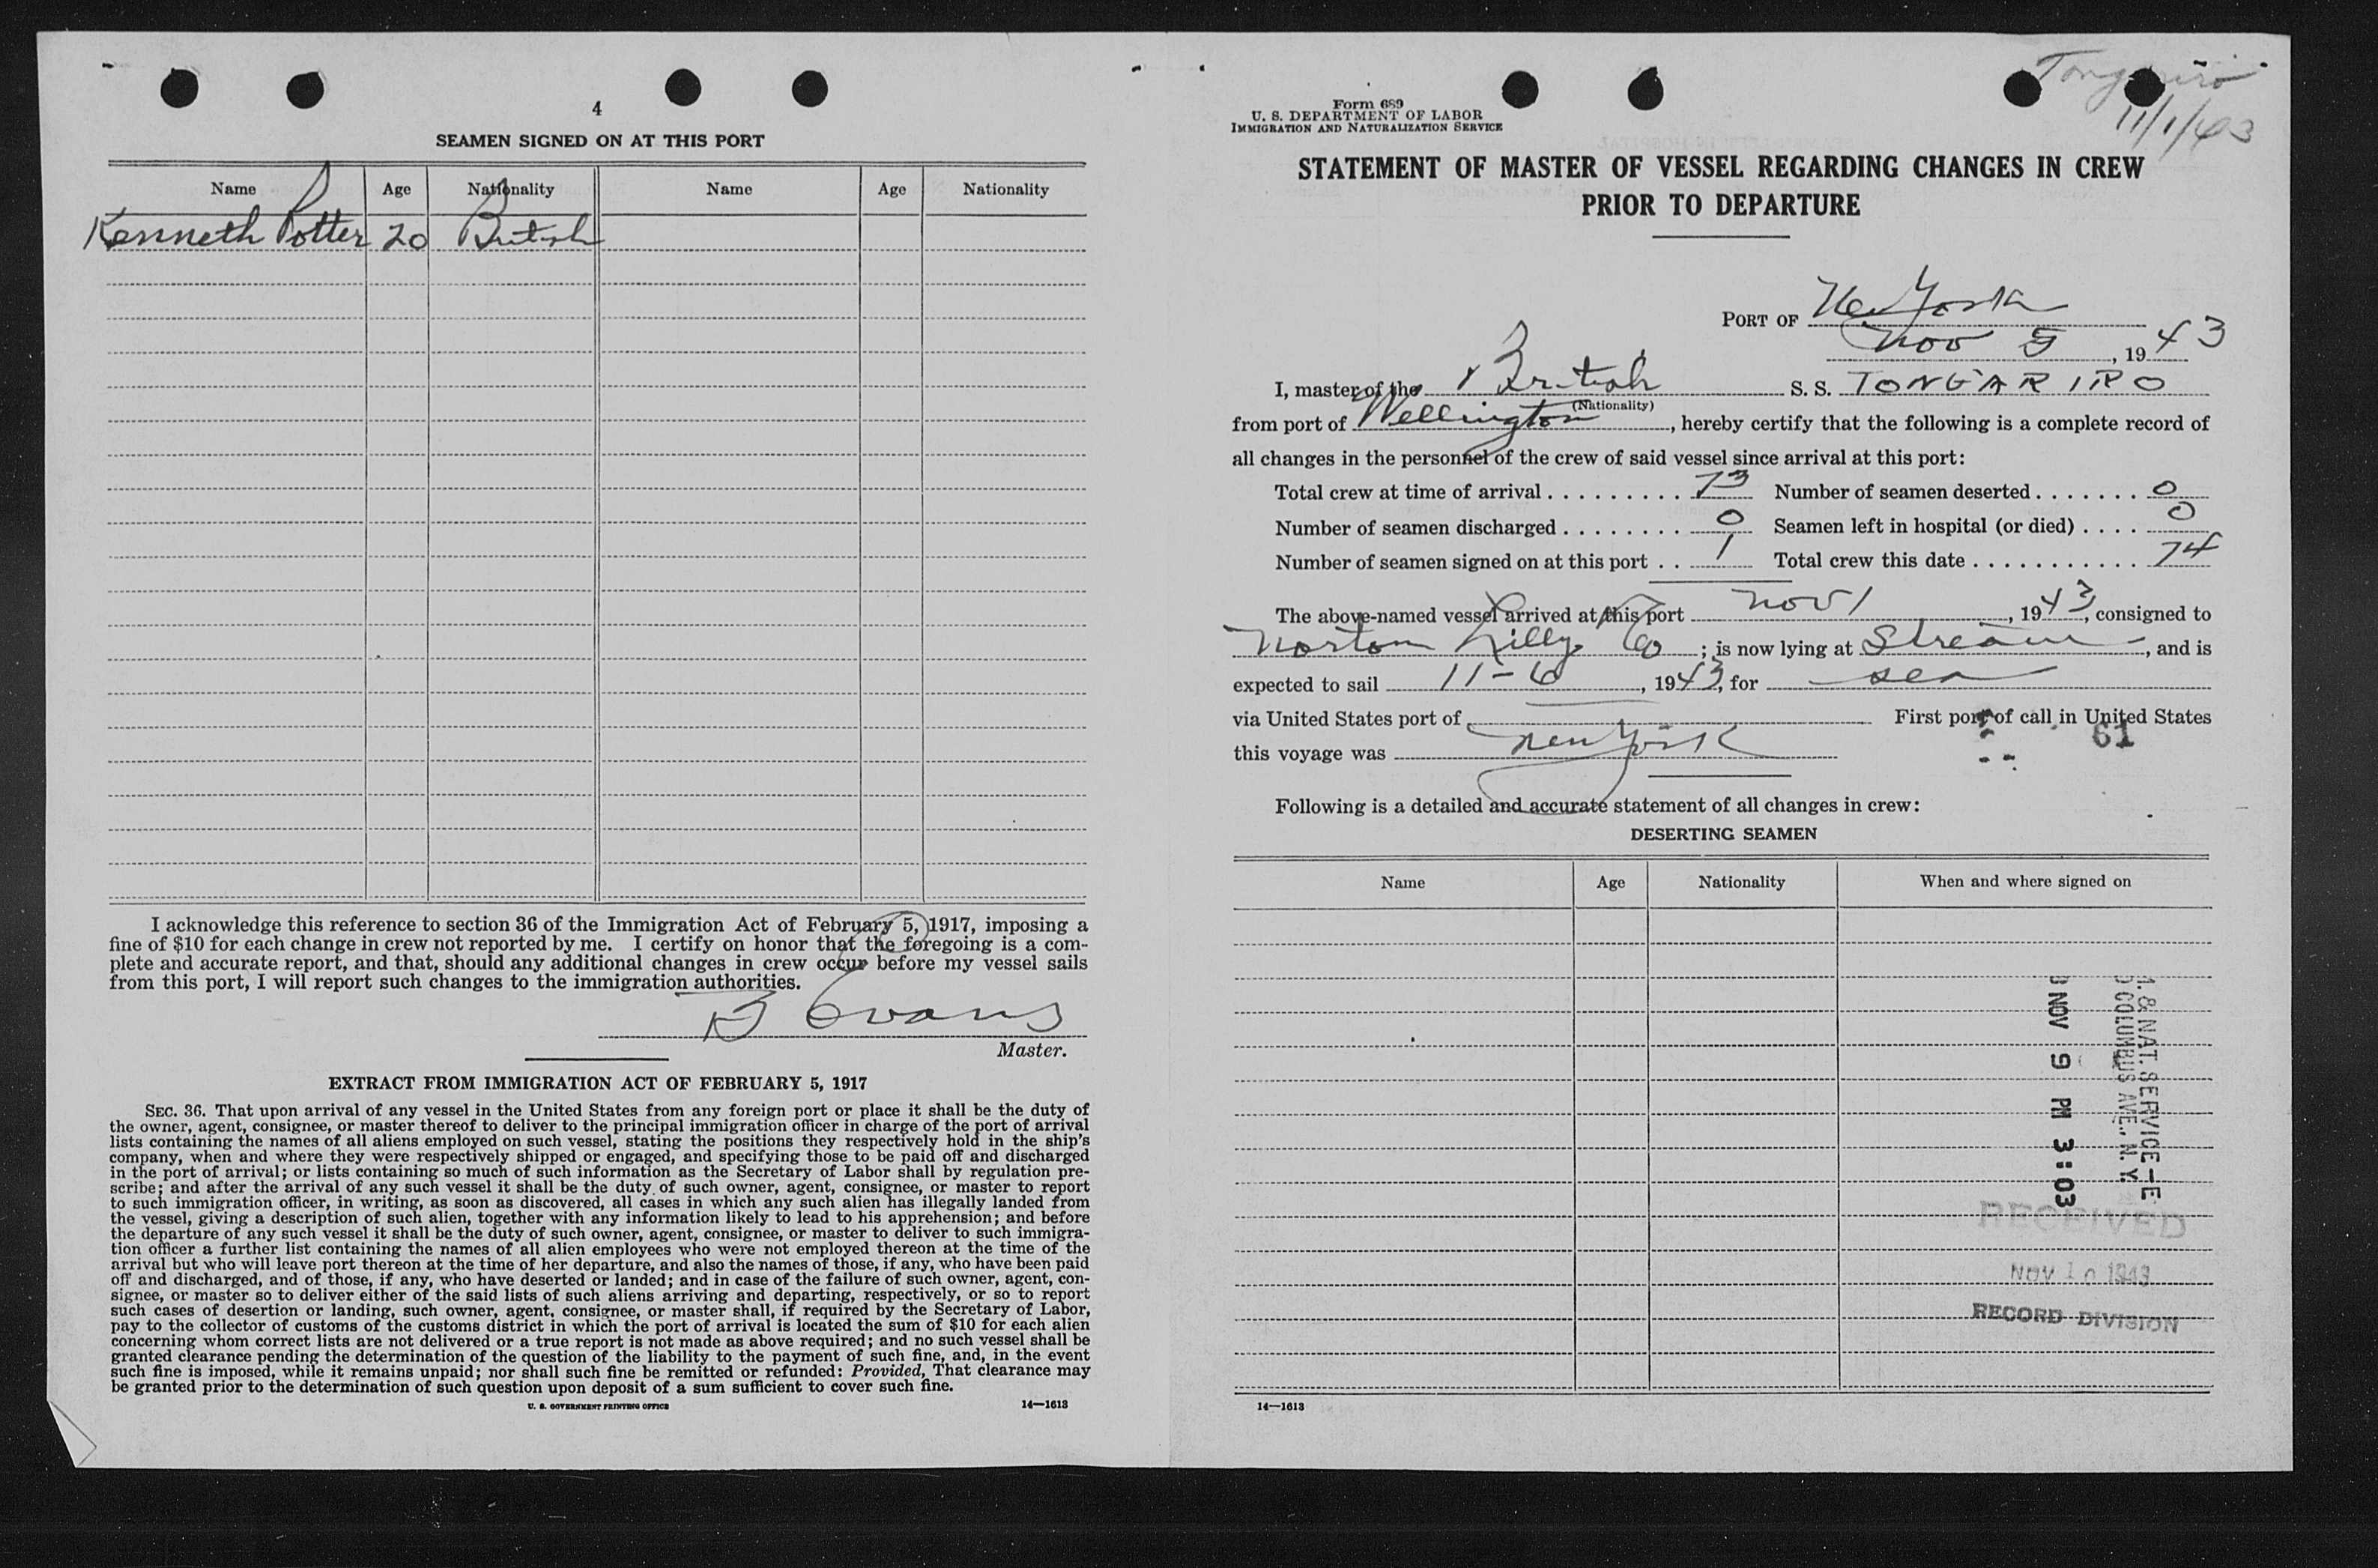 4
SEAMEN SIGNED ON AT THIS PORT
Name Age Nationality Name Age Nationality
Kenneth Potter 20 British
I acknowledge this reference to section 36 of the Immigration Act of February 5, 1917, imposing a
fine of $10 for each change in crew not reported by me. I certify on honor that the foregoing is a com-
plete and accurate report, and that, should any additional changes in crew occur before my vessel sails
from this port, I will report such changes to the immigration authorities.
B Evans
Master.
EXTRACT FROM IMMIGRATION ACT OF FEBRUARY 5, 1917
SEC. 36. That upon arrival of any vessel in the United States from any foreign port or place it shall be the duty of
the owner, agent, consignee, or master thereof to deliver to the principal immigration officer in charge of the port of arrival
lists containing the names of all aliens employed on such vessel, stating the positions they respectively hold in the ship's
company, when and where they were respectively shipped or engaged, and specifying those to be paid off and discharged
in the port of arrival; or lists containing so much of such information as the Secretary of Labor shall by regulation pre-
scribe; and after the arrival of any such vessel it shall be the duty of such owner, agent, consignee, or master to report
to such immigration officer, in writing, as soon as discovered, all cases in which any such alien has illegally landed from
the vessel, giving a description of such alien, together with any information likely to lead to his apprehension; and before
the departure of any such vessel it shall be the duty of such owner, agent, consignee, or master to deliver to such immigra-
tion officer a further list containing the names of all alien employees who were not employed thereon at the time of the
arrival but who will leave port thereon at the time of her departure, and also the names of those, if any, who have been paid
off and discharged, and of those, if any, who have deserted or landed; and in case of the failure of such owner, agent, con-
signee, or master so to deliver either of the said lists of such aliens arriving and departing, respectively, or so to report
such cases of desertion or landing, such owner, agent, consignee, or master shall, if required by the Secretary of Labor,
pay to the collector of customs of the customs district in which the port of arrival is located the sum of $10 for each alien
concerning whom correct lists are not delivered or a true report is not made as above required; and no such vessel shall be
granted clearance pending the determination of the question of the liability to the payment of such fine, and, in the event
such fine is imposed, while it remains unpaid; nor shall such fine be remitted or refunded: Provided, That clearance may
be granted prior to the determination of such question upon deposit of a sum sufficient to cover such fine.
U. S. GOVERNMENT PRINTING OFFICE 14—1613
Tongariro
11/1/43
Form 689
U. S. DEPARTMENT OF LABOR
IMMIGRATION AND NATURALIZATION SERVICE
STATEMENT OF MASTER OF VESSEL REGARDING CHANGES IN CREW
PRIOR TO DEPARTURE
PORT OF New York
Nov 5, 1943
I, master of the British S. S. TONGARIRO
(Nationality)
from port of Wellington, hereby certify that the following is a complete record of
all changes in the personnel of the crew of said vessel since arrival at this port:
Total crew at time of arrival . . . . . . . . . 73 Number of seamen deserted . . . . . . . 0
Number of seamen discharged . . . . . . . . 0 Seamen left in hospital (or died) . . . . 0
Number of seamen signed on at this port . . 1 Total crew this date . . . . . . . . . . . . 74
The above-named vessel arrived at this port Nov 1, 1943, consigned to
Norton Lilly Co; is now lying at Stream, and is
expected to sail 11-6, 1943, for sea
via United States port of First port of call in United States
this voyage was New York
61
Following is a detailed and accurate statement of all changes in crew:
DESERTING SEAMEN
Name Age Nationality When and where signed on
I. & NAT. SERVICE-E
COLUMBUS AVE., N. Y.
NOV 9 PM 3:03
RECEIVED
NOV 10 1943
RECORD DIVISION
14—1613